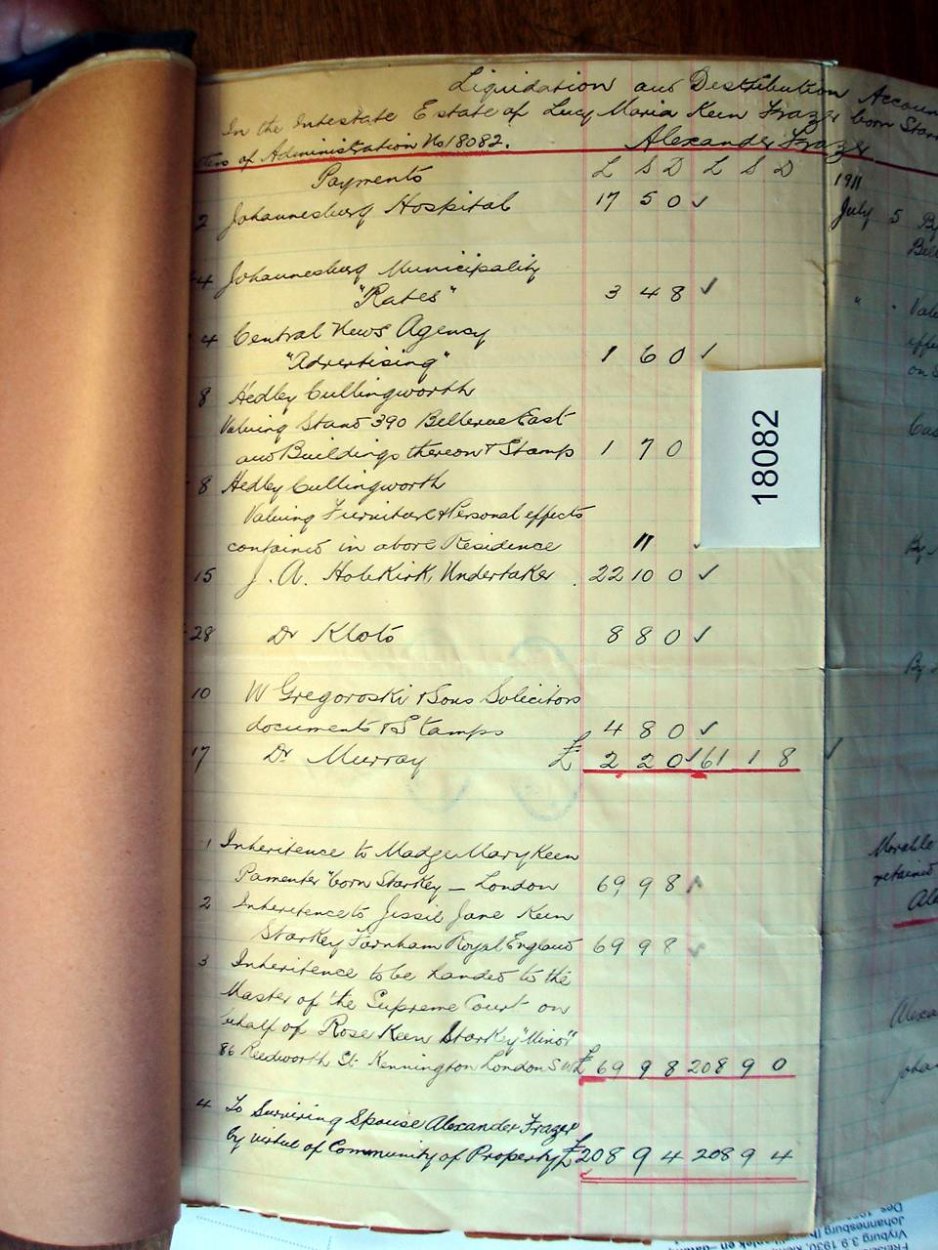 Liquidation and Distribution Accoun
In the Intestate Estate of Lucy Maria Keen Frazer born Star
ters of Administration No 18082. Alexander Frazer
Payments L S D L S D 1911
2 Johannesburg Hospital 17 5 0 ✓ July 5 By
4 Johannesburg Municipality
"Rates" 3 4 8 ✓ " "
4 Central News Agency
"Advertising" 1 6 0 ✓
on
8 Hedley Cullingworth
Valuing Stand 390 Bellevue East
and Buildings thereon & Stamp 1 7 0
8 Hedley Cullingworth
Valuing Furniture & Personal effects
contained in above Residence 11 ✓ By
15 J. A. Holekirk, Undertaker 22 10 0 ✓
28 Dr Kloto 8 8 0 ✓
By
10 W Gregoroski & Sons Solicitors
documents & Stamps 4 8 0 ✓
17 Dr Murray £ 2 2 0 ✓ 61 1 8 ✓
1 Inheritence to Madge Mary Keen
Pamenter "born Starkey — London 69 9 8
2 Inheritence to Jessie Jane Keen
Starkey Farnham Royal England 69 9 8 ✓
3 Inheritence to be handed to the
Master of the Supreme Court on
behalf of Rose Keen Starkey "Minor"
86 Reedworth St. Kennington London S W £ 69 9 8 208 9 0
4 To Surviving Spouse Alexander Frazer
by virtue of Community of Property £ 208 9 4 208 9 4
18082
Movable
retained
Ale
Alexa
Johan
Vryburg 3.9.1930,
Johannesburg